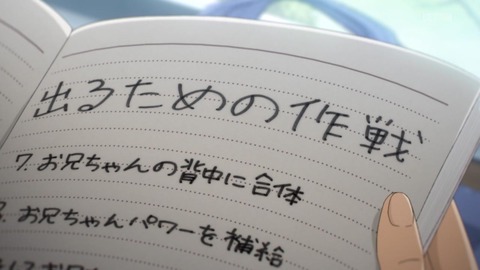 出るための作戦
7. お兄ちゃんの背中に合体
8. お兄ちゃんパワーを補給